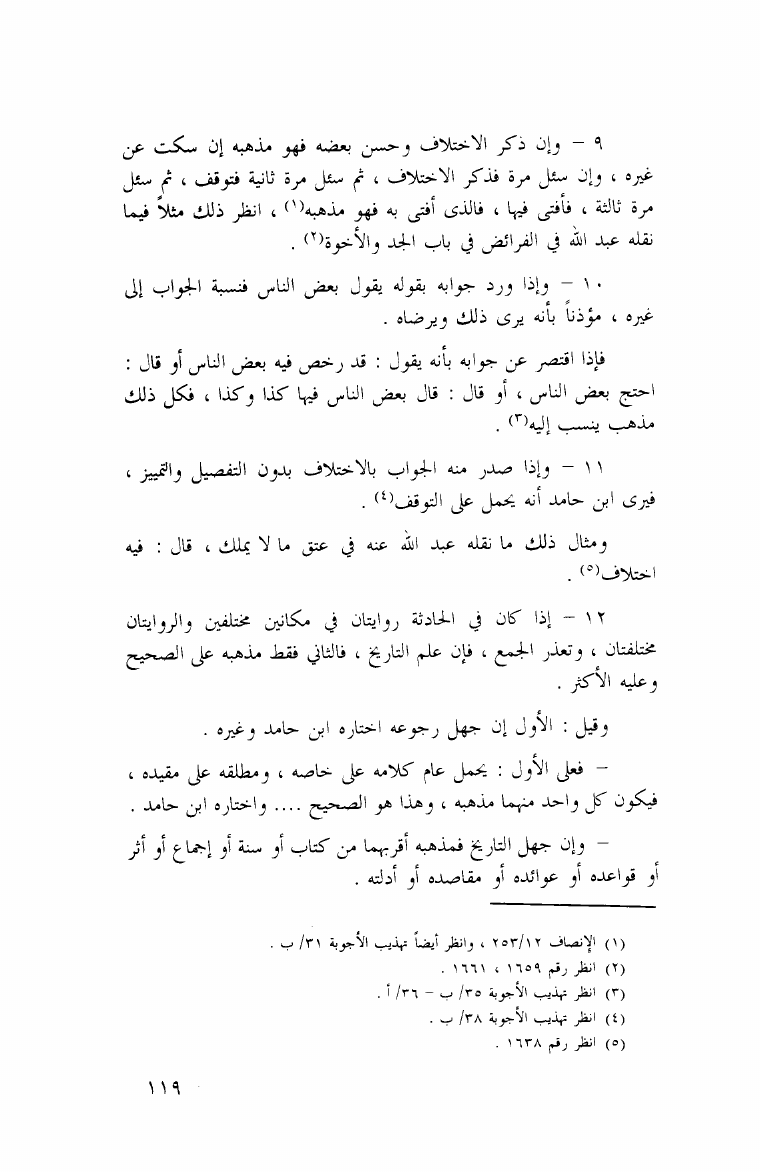 ٩ – وإن ذكر الاختلاف وحسن بعضه فهو مذهبه إن سكت عن
غيره ، وإن سئل مرة فذكر الاختلاف ، ثم سئل مرة ثانية فتوقف ، ثم سئل
مرة ثالثة ، فأفتى فيها ، فالذى أفتى به فهو مذهبه(١) ، انظر ذلك مثلاً فيما
نقله عبد الله في الفرائض في باب الجد والأخوة(٢) .
١٠ – وإذا ورد جوابه بقوله يقول بعض الناس فنسبة الجواب إلى
غيره ، مؤذناً بأنه يرى ذلك ويرضاه .
فإذا اقتصر عن جوابه بأنه يقول : قد رخص فيه بعض الناس أو قال :
احتج بعض الناس ، أو قال : قال بعض الناس فيها كذا وكذا ، فكل ذلك
مذهب ينسب إليه(٣) .
١١ – وإذا صدر منه الجواب بالاختلاف بدون التفصيل والتمييز ،
فيرى ابن حامد أنه يحمل على التوقف(٤) .
ومثال ذلك ما نقله عبد الله عنه في عتق ما لا يملك ، قال : فيه
اختلاف(٥) .
١٢ – إذا كان في الحادثة روايتان في مكانين مختلفين والروايتان
مختلفتان ، وتعذر الجمع ، فإن علم التاريخ ، فالثاني فقط مذهبه على الصحيح
وعليه الأكثر .
وقيل : الأول إن جهل رجوعه اختاره ابن حامد وغيره .
– فعلى الأول : يحمل عام كلامه على خاصه ، ومطلقه على مقيده ،
فيكون كل واحد منهما مذهبه ، وهذا هو الصحيح .... واختاره ابن حامد .
– وإن جهل التاريخ فمذهبه أقربهما من كتاب أو سنة أو إجماع أو أثر
أو قواعده أو عوائده أو مقاصده أو أدلته .
(١) الإنصاف ٢٥٣/١٢ ، وانظر أيضاً تهذيب الأجوبة ٣١/ ب .
(٢) انظر رقم ١٦٥٩ ، ١٦٦١ .
(٣) انظر تهذيب الأجوبة ٣٥/ ب – ٣٦/ أ .
(٤) انظر تهذيب الأجوبة ٣٨/ ب .
(٥) انظر رقم ١٦٣٨ .
١١٩